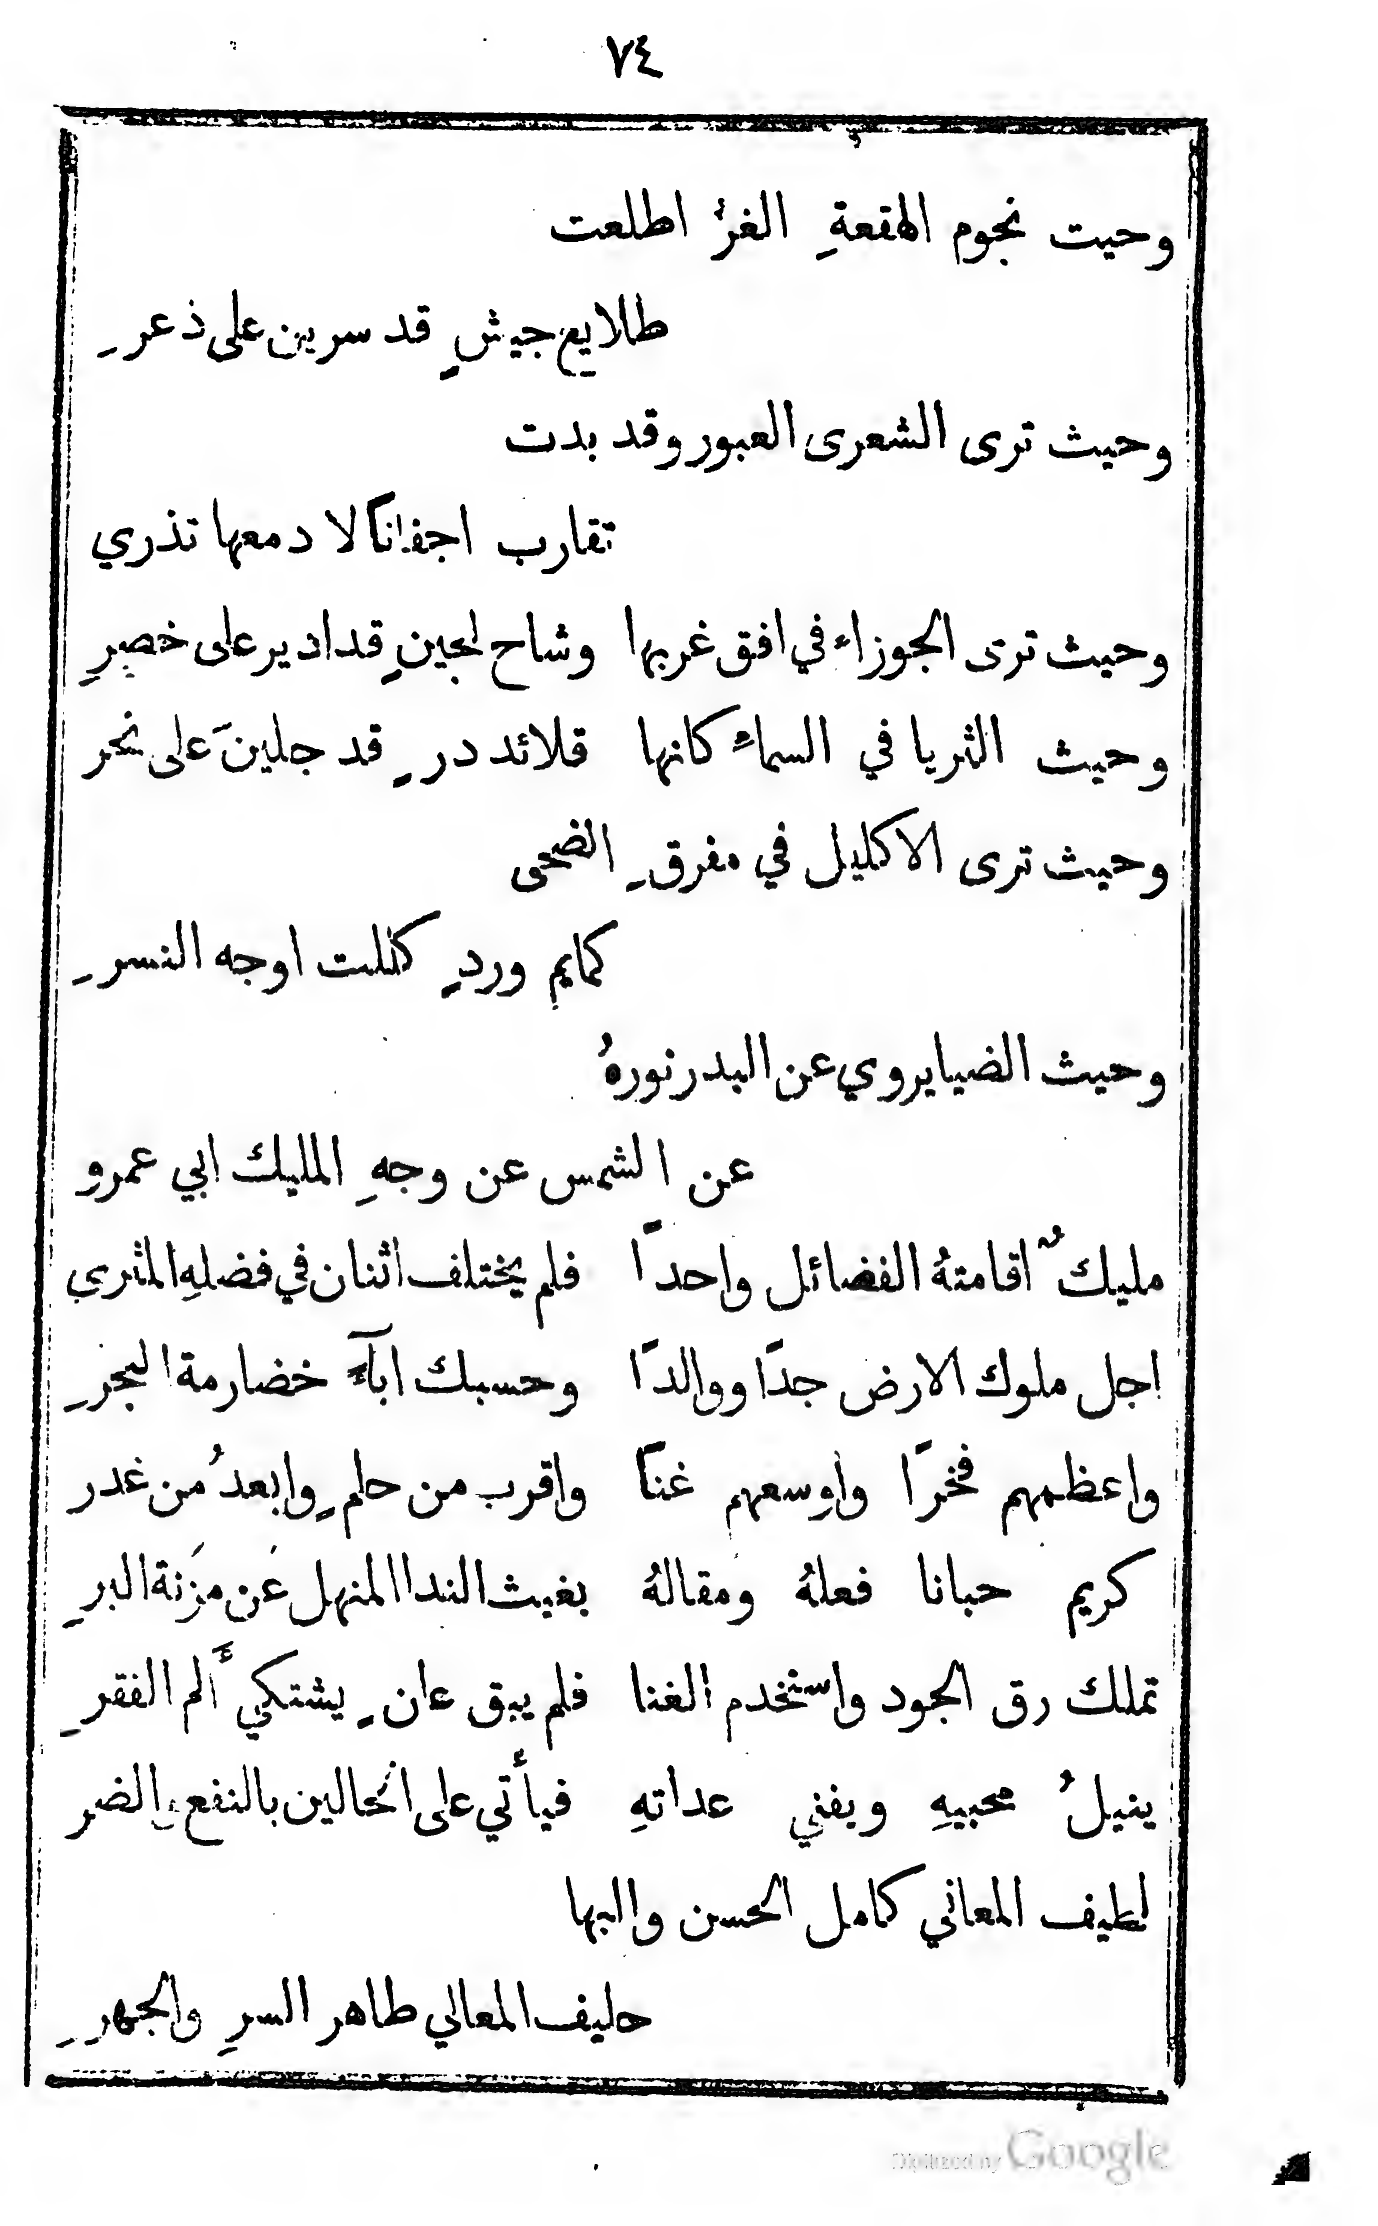 ٧٤
وحيت نجوم الهقعةِ الغرُّ اطلعت
طلايع جيشٍ قد سرين على ذعرِ
وحيث ترى الشعرى العبور وقد بدت
تقارب اجفانًا لا دمعها تذري
وحيث ترى الجوزاء في افق غربها وشاح لجينٍ قد ادير على خصرِ
وحيث الثريا في السماءِ كانها قلائد درٍ قد جلينَ على نحر
وحيث ترى الاكليل في مفرقِ الضحى
كمايم وردٍ كللت اوجه النسرِ
وحيث الضيا يروي عن البدر نورهُ
عن الشمس عن وجهِ المليك ابي عمرو
مليكٌ اقامتهُ الفضائل واحدًا فلم يختلف اثنان في فضلهِ المثري
اجل ملوك الارض جدًا ووالدًا وحسبك ابآءً خضارمة البحرِ
واعظمهم فخرًا واوسعهم غنًا واقرب من حلمٍ وابعدُ من غدر
كريم حبانا فعلهُ ومقالهُ بغيث الندا المنهل عَن مزَنة البرِ
تملك رق الجود واستخدم الغنا فلم يبق عانٍ يشتكي أَلم الفقرِ
ينيلُ محبيهِ ويفني عداتهِ فيأتي على الحالين بالنفع والضر
لطيف المعاني كامل الحسن والبها
حليف المعالي طاهر السرِ والجهرِ
Digitized by Google